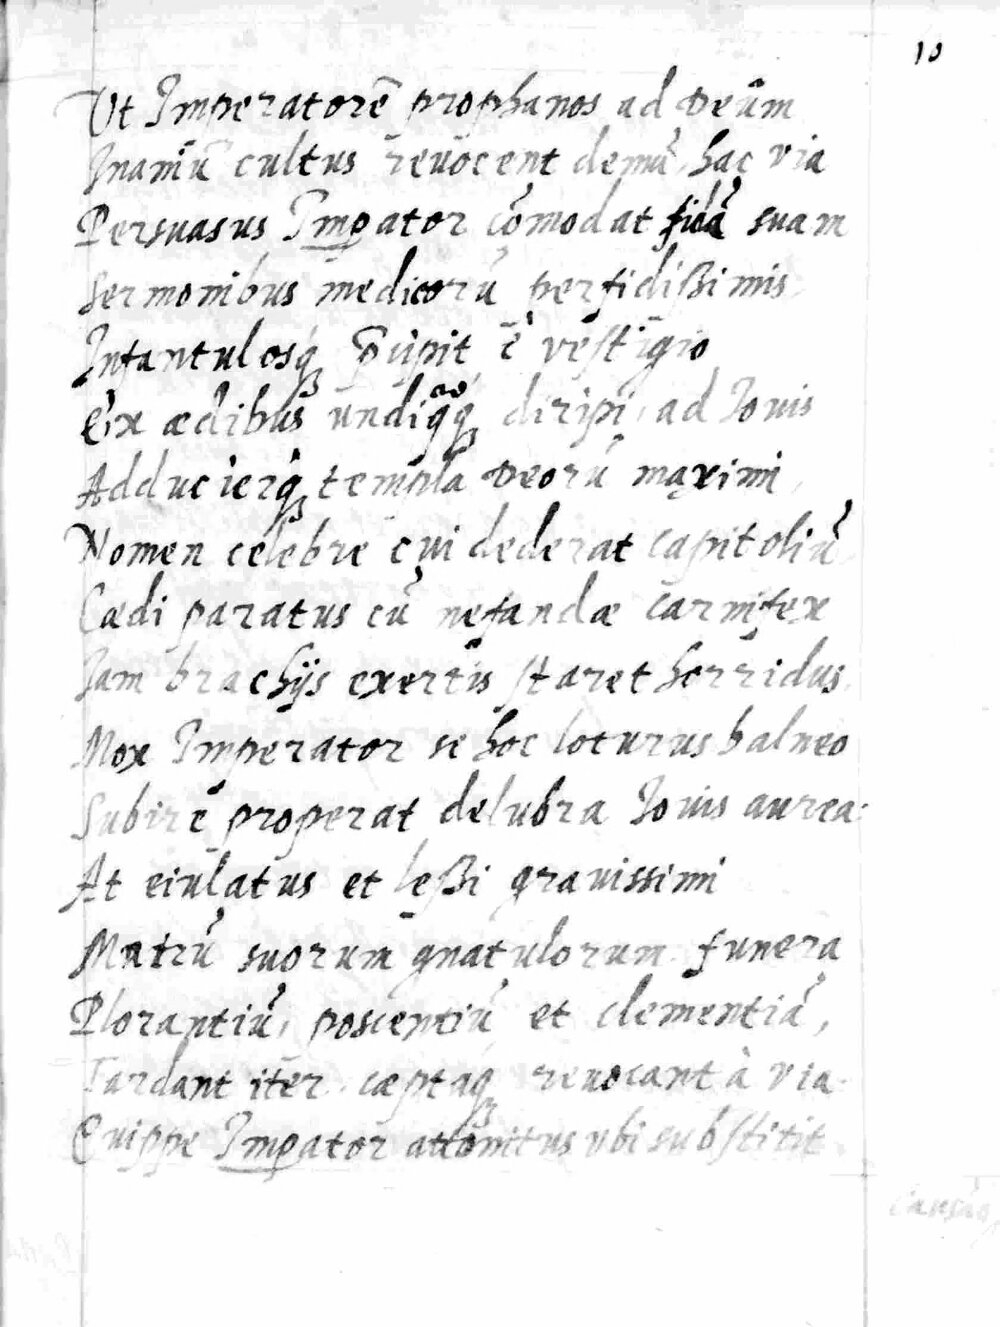 10
Ut Imperatorē prophanos ad Deūm
Inaniū cultus revocent demū hac via
Persuasus Imp̱ator cōmodat fidē suam
Sermonibus medicorū perfidißimis
Infantulosq́ꝫ è vestigio
Ex ædibus undiq̃q́ꝫ diripi, ad Iovis
Adducierq́ꝫ templa Deorū maximi,
Nomen celebre cui dederat capitoliū
Cædi paratus cū nefandæ carnifex
Iam brachijs exertis staret horridus.
Mox Imperator se hoc loturus balneo
Subire properat delubra Iovis aurea:
At eiulatus et leßi gravissimi
Matrū suorum gnatulorum funera
Plorantiū, poscentiū et clementiā,
Tardant iter cæptaq́ꝫ revocant à via.
Quippe Imp̱ator attonitus ubi substitit
Causāq́ꝫ